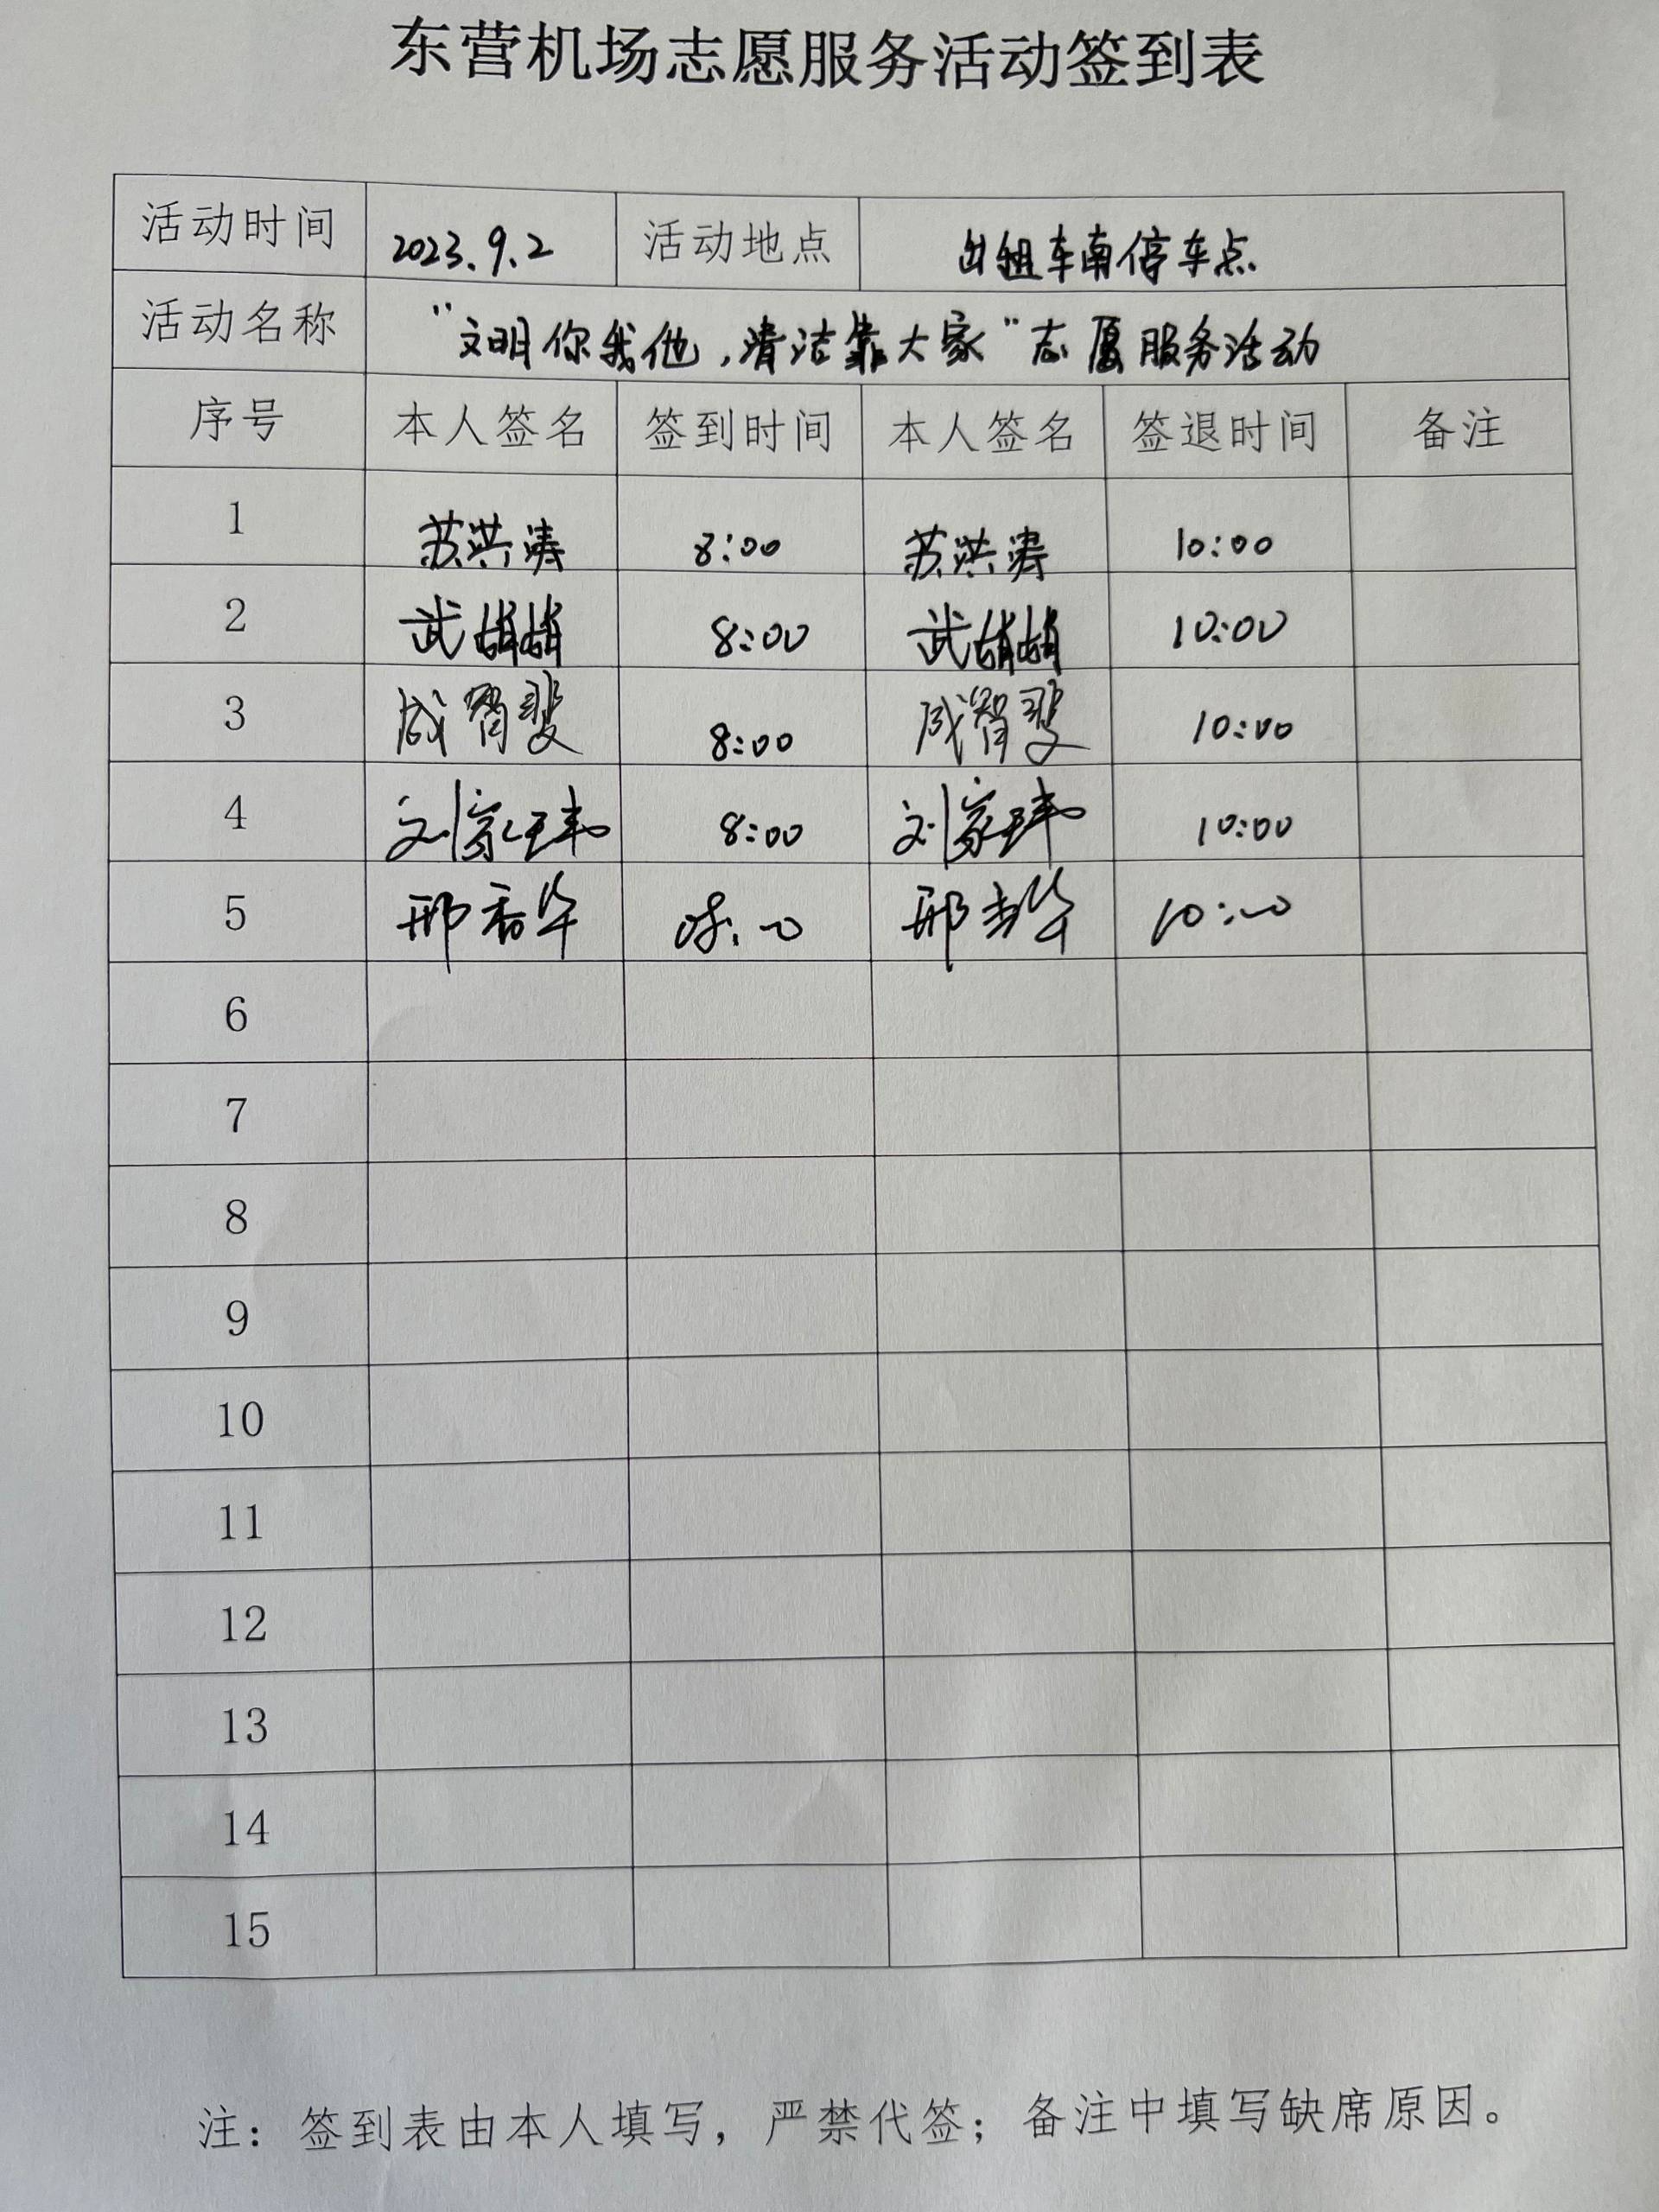 东营机场志愿服务活动签到表
活动时间 2023.9.2 活动地点 出租车南停车点
活动名称 "文明你我他,清洁靠大家"志愿服务活动
序号 本人签名 签到时间 本人签名 签退时间 备注
1 苏洪涛 8:00 苏洪涛 10:00
2 武娟娟 8:00 武娟娟 10:00
3 成智斐 8:00 成智斐 10:00
4 刘家玮 8:00 刘家玮 10:00
5 邢 10:00
6
7
8
9
10
11
12
13
14
15
注：签到表由本人填写，严禁代签；备注中填写缺席原因。